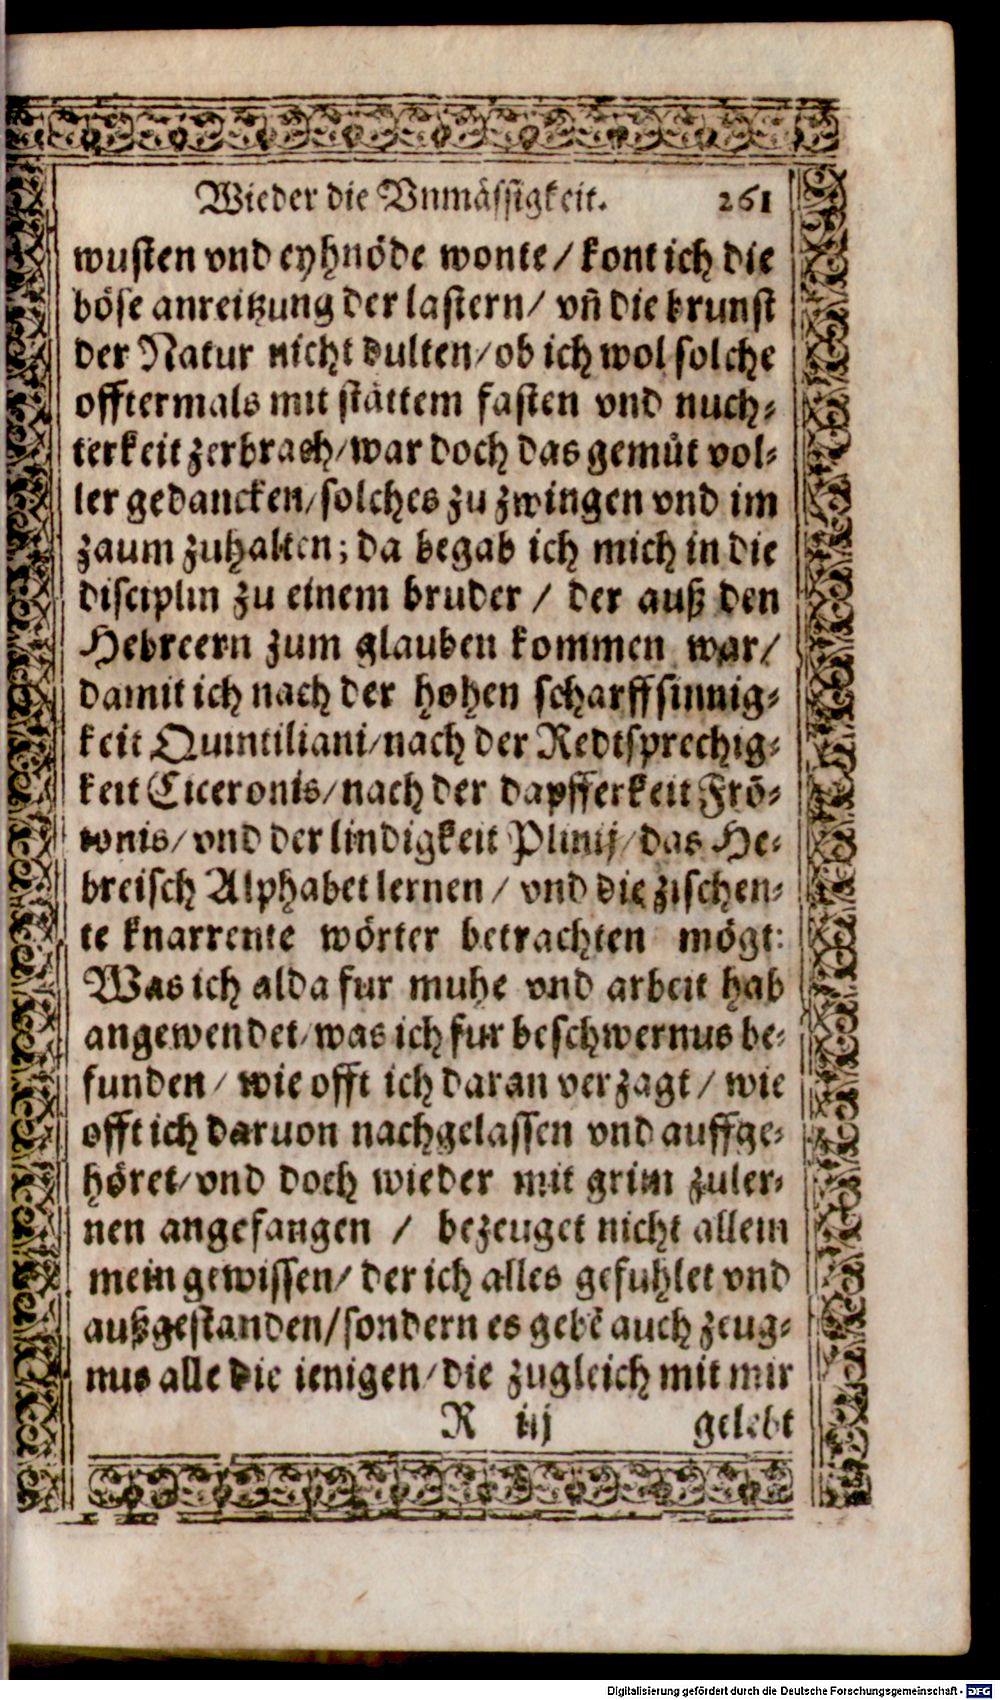 Wieder die Vnmässigkeit. 261
wusten vnd eyhnöde wonte / kont ich die
böse anreitzung der lastern / vn̄ die brunst
der Natur nicht dulten / ob ich wol solche
offtermals mit stättem fasten vnd nuch⸗
terkeit zerbrach / war doch das gemüt vol⸗
ler gedancken / solches zu zwingen vnd im
zaum zuhalten; da begab ich mich in die
disciplin zu einem bruder / der auß den
Hebreern zum glauben kommen war /
damit ich nach der hohen scharffsinnig⸗
keit Quintiliani / nach der Redtsprechig⸗
keit Ciceronis / nach der dapfferkeit Frö⸗
tonis / vnd der lindigkeit Plinij / das He⸗
breisch Alphabet lernen / vnd die zischen⸗
te knarrente wörter betrachten mögt:
Was ich alda fur muhe vnd arbeit hab
angewendet / was ich fur beschwernus be⸗
funden / wie offt ich daran verzagt / wie
offt ich daruon nachgelassen vnd auffge⸗
höret / vnd doch wieder mit grim zuler⸗
nen angefangen / bezeuget nicht allein
mein gewissen / der ich alles gefuhlet vnd
außgestanden / sondern es gebē auch zeug⸗
nus alle die ienigen / die zugleich mit mir
R iij gelebt
Digitalisierung gefördert durch die Deutsche Forschungsgemeinschaft - DFG